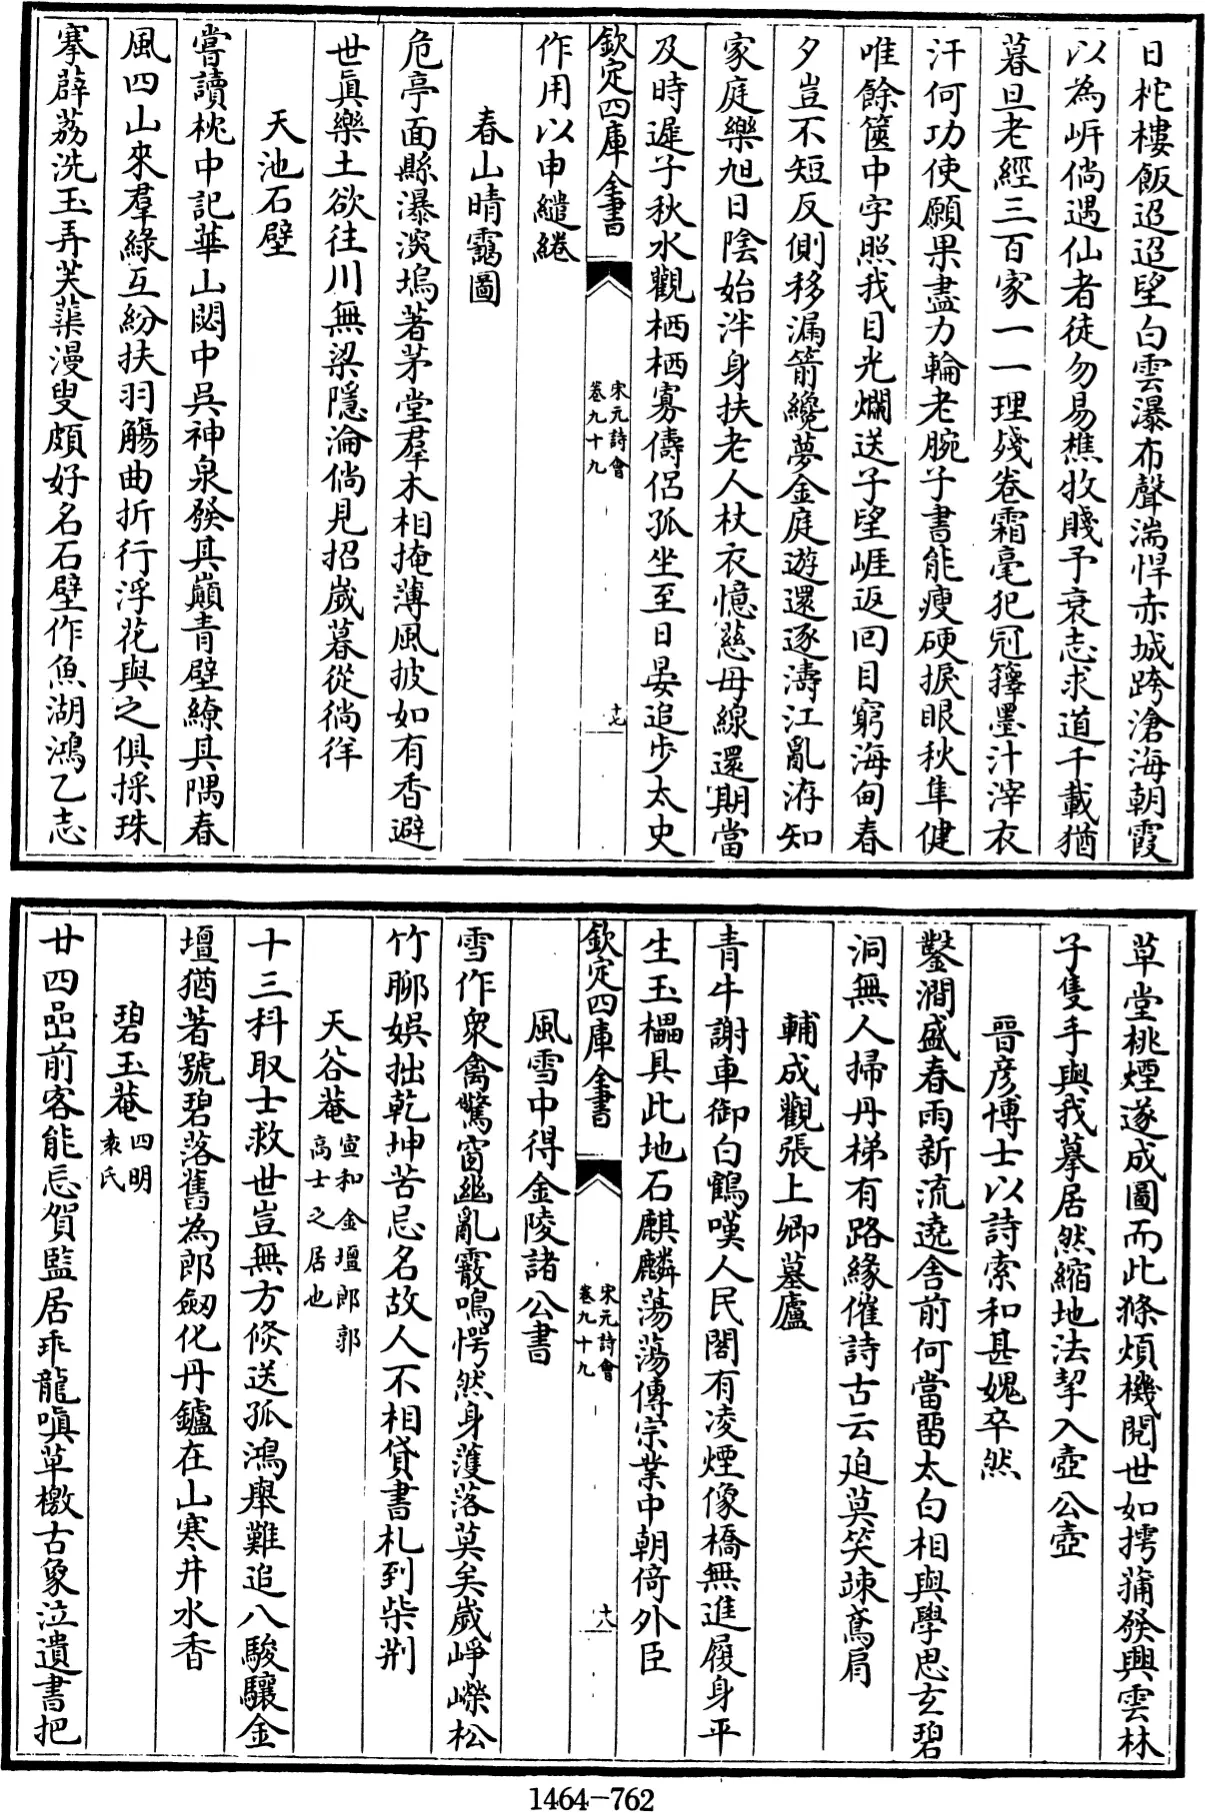 日柁樓飯迢迢望白雲瀑布聲湍悍赤城跨滄海朝霞
以為㟁倘遇仙者徒勿易樵牧賤予衰志求道千載猶
暮旦老經三百家一一理殘卷霜毫犯冠籜墨汁滓衣
汗何功使願果盡力輪老腕子書能瘦硬捩眼秋隼健
唯餘篋中字照我目光爛送子望崖返回目窮海甸春
夕豈不短反側移漏箭纔夢金庭遊還逐濤江亂洊知
家庭樂旭日陰始泮身扶老人杖衣憶慈母線還期當
及時遲子秋水觀栖栖寡儔侣孤坐至日晏追步太史
欽定四庫全書
宋元詩會
卷九十九
十七
作用以申繾綣
春山晴靄圖
危亭面縣瀑深塢著茅堂羣木相掩薄風披如有香避
世眞樂土欲往川無梁隱淪倘見招歲暮從徜徉
天池石壁
嘗讀枕中記華山閟中吳神泉發其巔青壁繚其隅春
風四山來羣綠互紛扶羽觴曲折行浮花與之俱採珠
搴薜荔洗玉弄芙蕖漫叟頗好名石壁作魚湖鴻乙志
草堂桃煙遂成圖而此滌煩機閱世如摴蒱發興雲林
子隻手與我摹居然縮地法挈入壺公壺
晉彦博士以詩索和甚媿卒然
鑿澗盛春雨新流遶舍前何當畱太白相與學思玄碧
洞無人掃丹梯有路緣催詩古云迫莫笑竦鳶肩
輔成觀張上卿墓廬
青牛謝車御白鶴嘆人民閣有凌煙像橋無進履身平
生玉櫑具此地石麒麟蕩蕩傳宗業中朝倚外臣
欽定四庫全書
宋元詩會
卷九十九
十八
風雪中得金陵諸公書
雪作衆禽驚窗𢇁亂霰鳴愕然身濩落莫矣歲崢嶸松
竹聊娯拙乾坤苦忌名故人不相貸書札到柴荆
天谷菴宣和金壇郎郭
高士之居也
十三科取士救世豈無方倐送孤鴻舉難追八駿驤金
壇猶著號碧落舊為郎劒化丹鑪在山寒井水香
碧玉菴四明
袁氏
廿四嵒前客能忘賀監居乖龍嗔草檄古象泣遺書把
1464-762